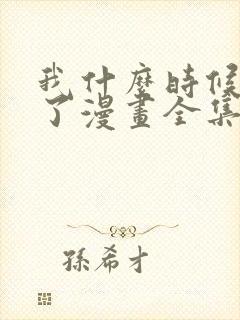 我什麼時候
了漫畫全集
孫希才